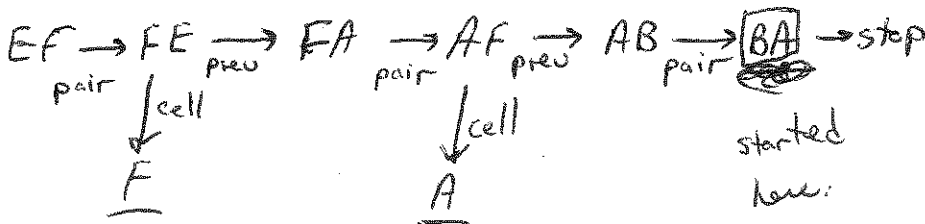 EF → FE → FA → AF → AB → BA → stop
pair prev pair prev pair
cell cell started
F A here.